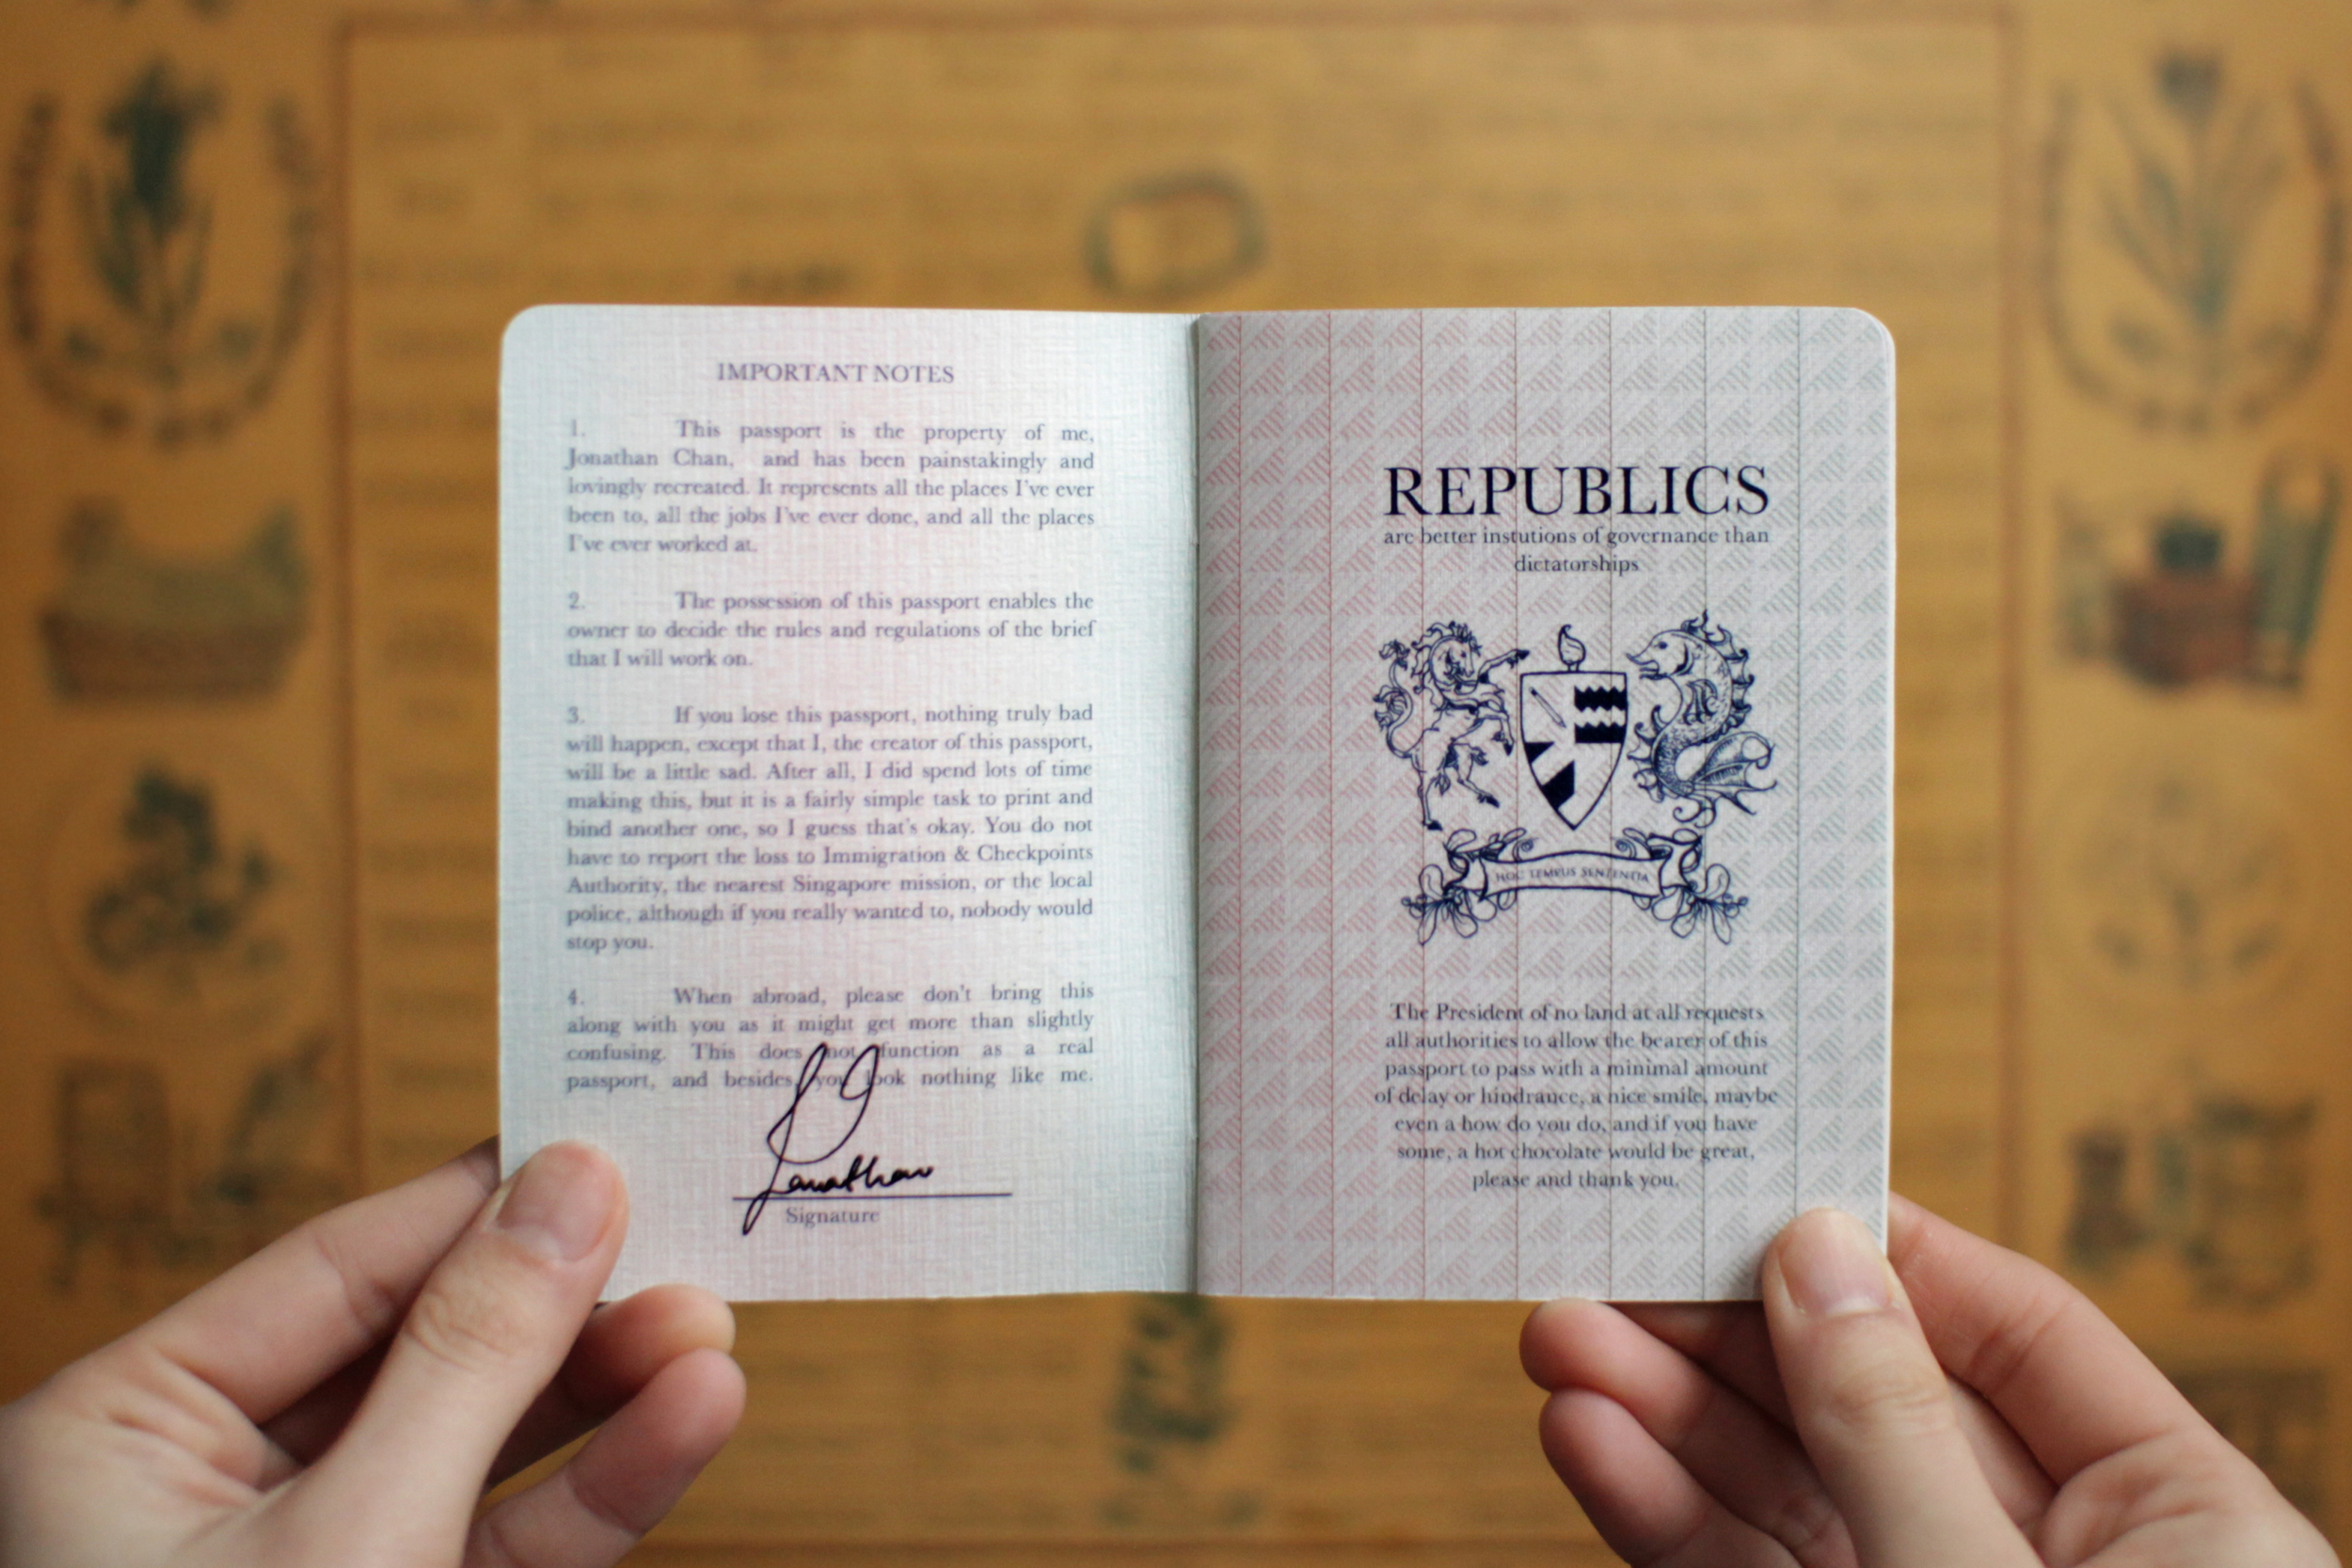 IMPORTANT NOTES
1. This passport is the property of me,
Jonathan Chan, and has been painstakingly and
lovingly recreated. It represents all the places I've ever
been to, all the jobs I've ever done, and all the places
I've ever worked at.
2. The possession of this passport enables the
owner to decide the rules and regulations of the brief
that I will work on.
3. If you lose this passport, nothing truly bad
will happen, except that I, the creator of this passport,
will be a little sad. After all, I did spend lots of time
making this, but it is a fairly simple task to print and
bind another one, so I guess that's okay. You do not
have to report the loss to Immigration & Checkpoints
Authority, the nearest Singapore mission, or the local
police, although if you really wanted to, nobody would
stop you.
4. When abroad, please don't bring this
along with you as it might get more than slightly
confusing. This does not function as a real
passport, and besides, you look nothing like me.
Jonathan
Signature
REPUBLICS
are better instutions of governance than
dictatorships
HOC TEMPUS SENTENTIA
The President of no land at all requests
all authorities to allow the bearer of this
passport to pass with a minimal amount
of delay or hindrance, a nice smile, maybe
even a how do you do, and if you have
some, a hot chocolate would be great,
please and thank you.